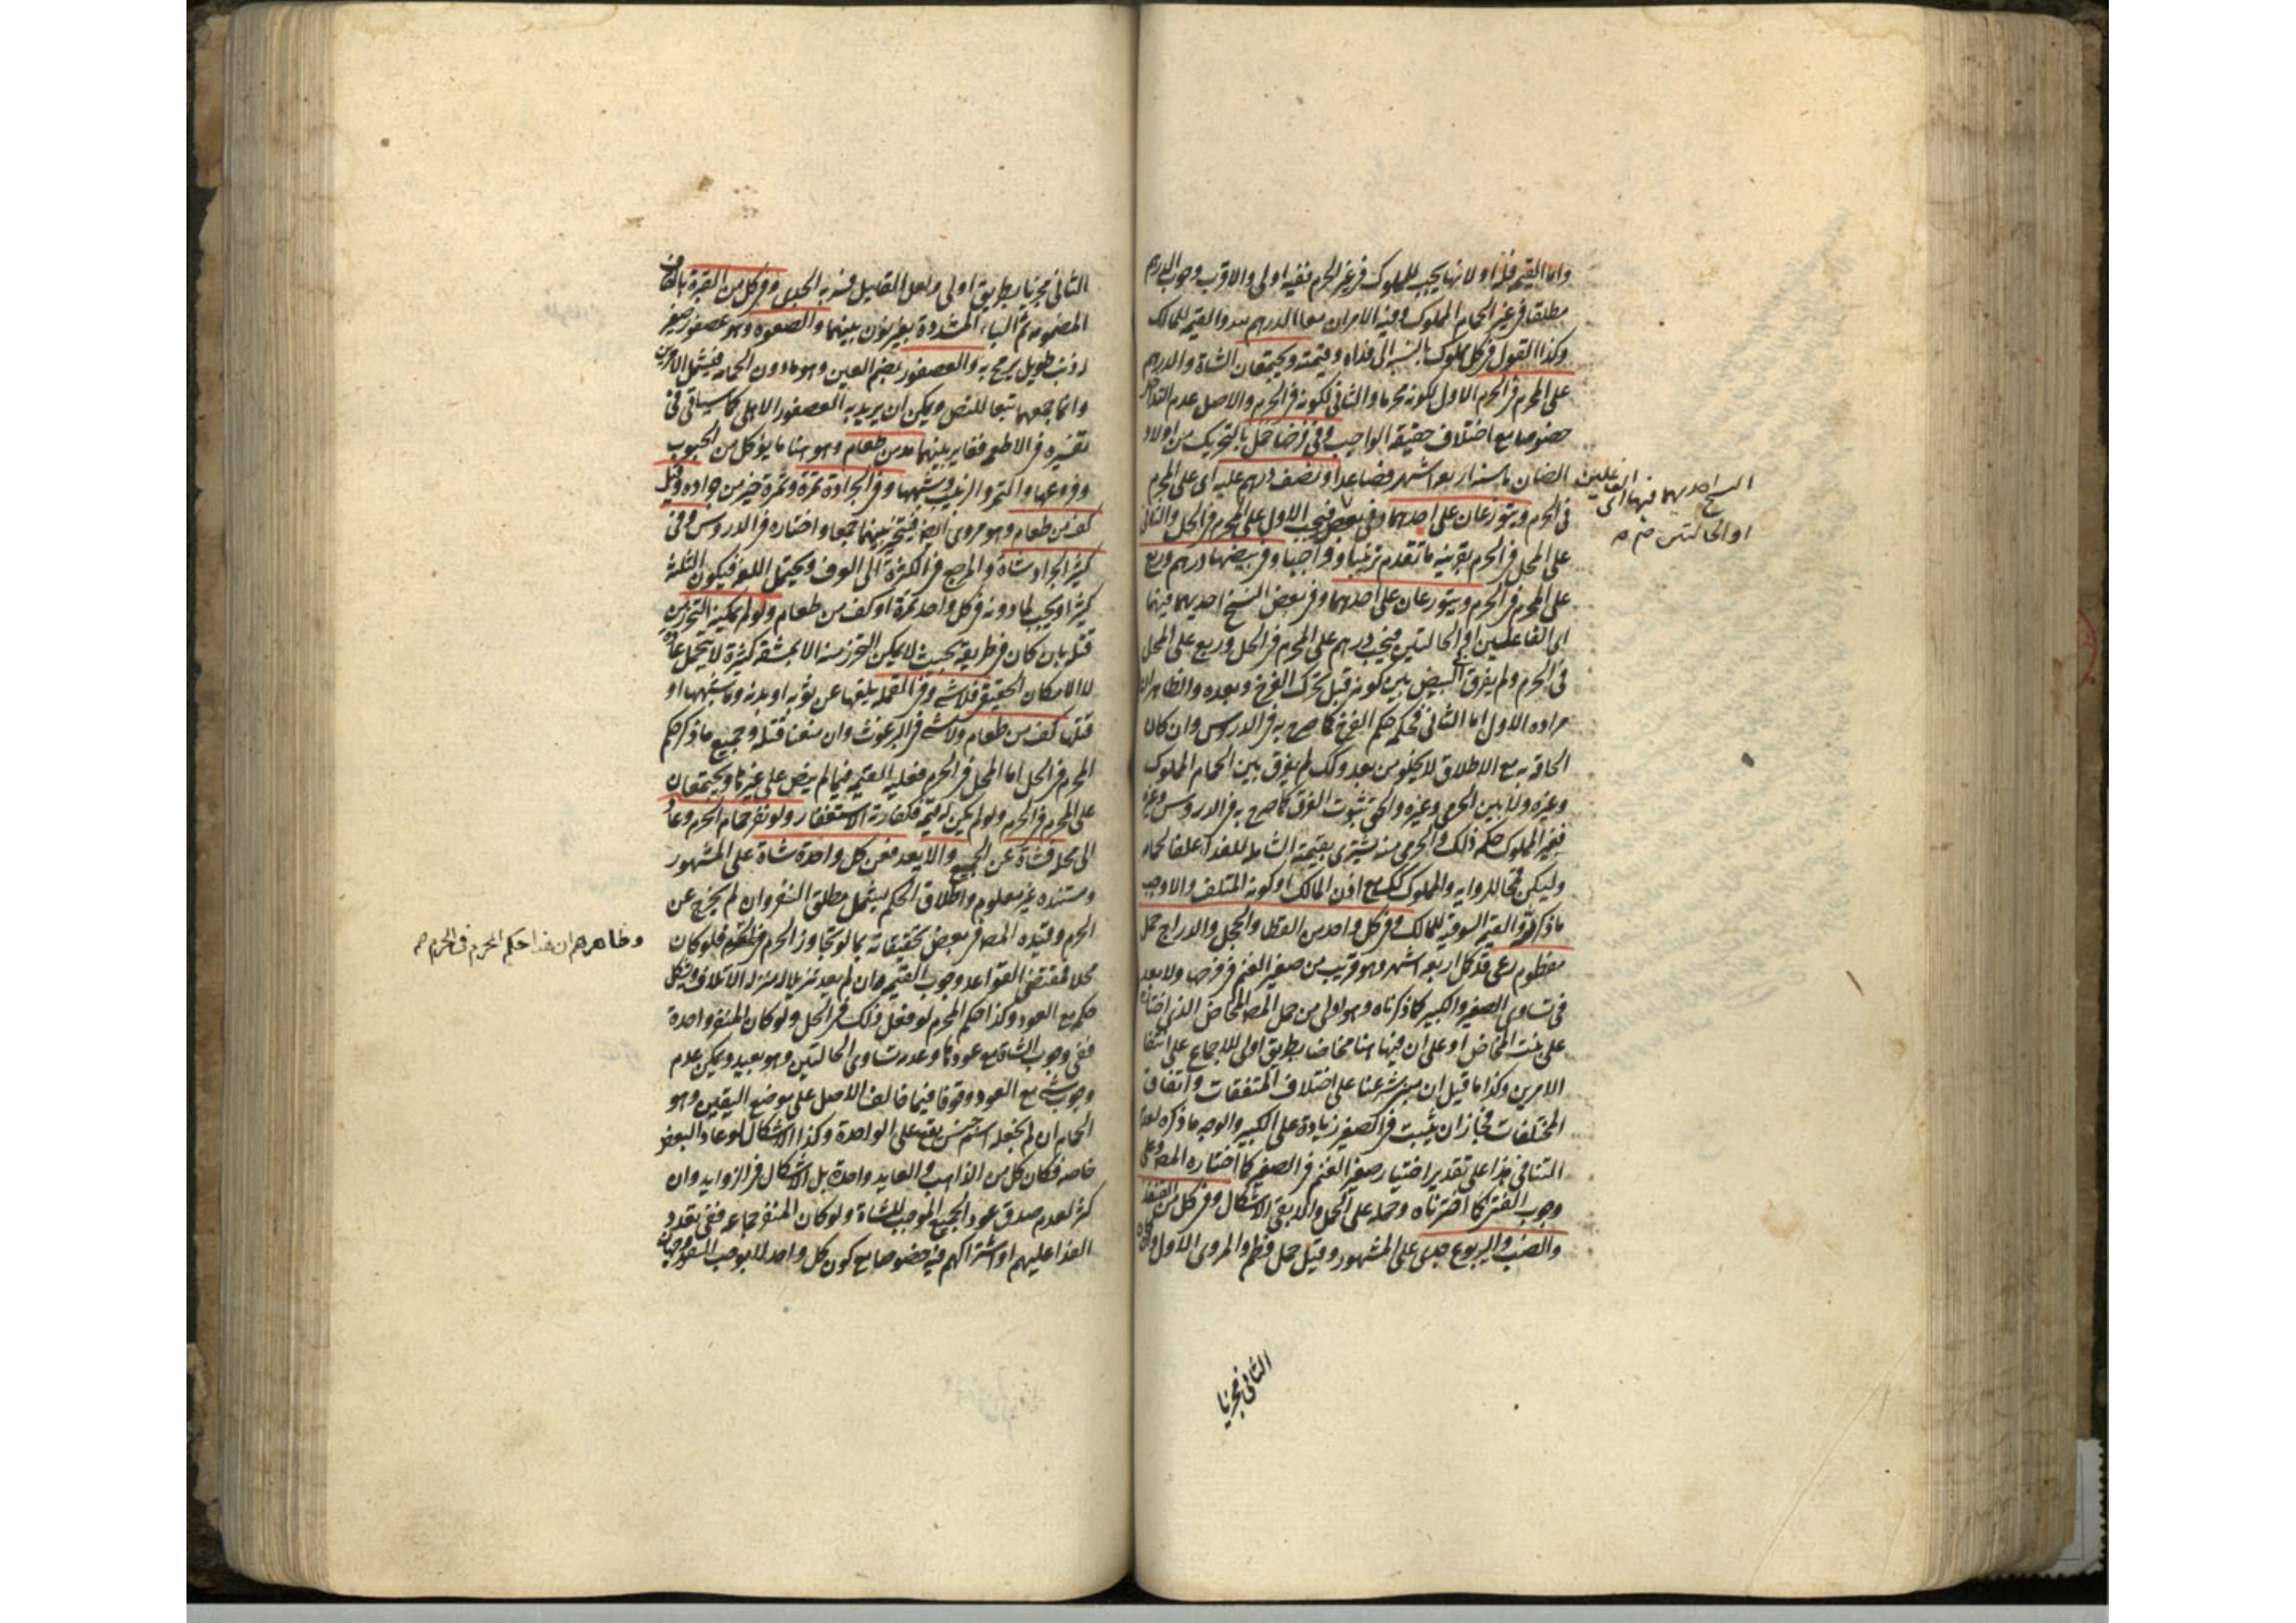 واما القيمة فلذا ولانها يجب للمملوك في غير الحرم ففيه اولى والاقرب وجوب الدرهم
مطلقا في غير الحمام المملوك وفيه الامران معا الدرهم لله والقيمة للمالك
وكذا القول في كل مملوك بالنسبة الى فداه وقيمته ويجتمعان الشاة والدرهم
على المحرم في الحرم الاول لكونه محرما والثاني لكونه في الحرم والاصل عدم التداخل
خصوصا مع اختلاف حقيقة الواجب وفي فرخها حمل بالتحريك من اولاد
الضان ما سنه اربعة اشهر فصاعدا او نصف درهم عليه اى على المحرم
في الحرم ويتوزعان على احدهما وفي بعض فيجب الاول على المحرم في الحل والثاني
على المحل في الحرم بقرينة ما تقدم ترتيبا وواجبا وفي بيضها درهم وربع
على المحرم في الحرم ويتوزعان على احدهما وفي بعض النسخ احديهما فيهما
اى الفاعلين او الحالتين فيجب درهم على المحرم في الحل وربع على المحل
في الحرم ولم يفرق في البيض بين كونه قبل تحرك الفرخ وبعده والظاهر ان
مراده الاول اما الثاني فحكمه حكم الفرخ كما صرح به في الدروس وان كان
الحاقه به مع الاطلاق لا يخلو من بعد وكك لم يفرق بين الحمام المملوك
وغيره ولا بين الحرمي وغيره والحق ثبوت الفرق كما صرح به في الدروس وغيره
فغير المملوك حكمه ذلك والحرمي منه يشترى بقيمته الشاملة للفداء علفا لحمامه
وليكن قمحا للرواية والمملوك كك مع اذن المالك او كونه المتلف والا وجب
ما ذكر لله والقيمة السوقية للمالك وفي كل واحد من القطا والحجل والدراج حمل
مفطوم رعى قد كمل اربعة اشهر وهو قريب من صغير الغنم في فرخها ولا بعد
في تساوى الصغير والكبير كما ذكرناه وهو اولى من حمل المص المخاض الذي اختاره
على بنت المخاض او على ان فيها هنا مخاضا بطريق اولى للاجماع على انتفا
الامرين وكذا ما قيل ان مبنى شرعنا على اختلاف المتفقات واتفاق
المختلفات فجاز ان يثبت في الصغير زيادة على الكبير والوجه ما ذكره لعدم
التنافي هذا على تقدير اختيار صغير الغنم في الصغير كما اختاره المص وعلى
وجوب الفتى كما اخترناه وحمله على الحمل والا بقى الاشكال وفي كل من القنفذ
والضب واليربوع جدى على المشهور وقيل حمل فطم والمروي الاول وكان
الثاني مجزيا
النسخ احديهما فيهما اى الفاعلين
او الحالتين
الثاني مجزيا بطريق اولى ولعل القايل فسر به الجدى وفي كل من القبرة بالقاف
المضمومة ثم الباء المشددة بغير نون بينهما والصعوة وهو عصفور صغير
له ذنب طويل يرمح به والعصفور بضم العين وهو ما دون الحمامة فيشمل الامرين
وانما جمعهما تبعا للنص ويمكن ان يريد به العصفور الاهلى كما سياتي في
تفسيره في الاطعمة فغاير بينهما مد من طعام وهو هنا ما يؤكل من الحبوب
وفروعها والتمر والزبيب وشبهها وفي الجرادة تمرة وتمرة خير من جرادة وقيل
كف من طعام وهو مروي ايضا فيتخير بينهما جمعا واختاره في الدروس وفي
كثير الجراد شاة والمرجع في الكثرة الى العرف ويحتمل اللغة فيكون الثلثة
كثيرا ويجب لما دونه في كل واحد تمرة او كف من طعام ولو لم يمكن التحرز من
قتله بان كان في طريقه بحيث لا يمكن التحرز منه الا بمشقة كثيرة لا يتحمل عادة
لا الامكان الحقيقي فلا شئ وفي القملة يلقيها عن ثوبه او بدنه وما شبههما او
قتلها كف من طعام ولا شئ في البرغوث وان منعنا قتله وجميع ما ذكر حكم
المحرم في الحل اما المحل في الحرم فعليه القيمة فيما لم ينص على غيرها ويجتمعان
على المحرم في الحرم ولو لم يكن له قيمة فكفارته الاستغفار ولو نفر حمام الحرم وعاد
الى محله فشاة عن الجميع والا يعد فعن كل واحدة شاة على المشهور
ومستنده غير معلوم واطلاق الحكم يشمل مطلق التنفير وان لم يخرج عن
الحرم وقيده المص في بعض تحقيقاته بما لو تجاوز الحرم فلو كان
محلا فمقتضى القواعد وجوب القيمة وان لم يعد تنزيلا له منزلة الاتلاف ويشكل
حكمه مع العود وكذا حكم المحرم لو فعل ذلك في الحل ولو كان المنفر واحدة
ففي وجوب الشاة مع عودها وعدمه تساوى الحالتين وهو بعيد ويمكن عدم
وجوب شئ مع العود وقوفا فيما خالف الاصل على موضع اليقين وهو
الحمام ان لم نجعله اسم جنس يقع على الواحدة وكذا الاشكال لو عاد البعض
خاصة فكان كل من الذاهب والعايد واحدة بل الاشكال في الزوايد وان
كثر لعدم صدق عود الجميع الموجب للشاة ولو كان المنفر جماعة ففي تعدد
الفداء عليهم او اشتراكهم فيه خصوصا مع كون كل واحد لا يوجب النفور وجهان
وظاهرهم ان هذا حكم المحرم في الحرم